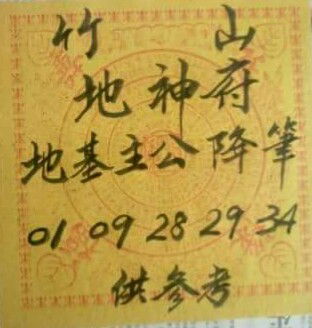 竹山
地神府
地基主公降筆
01 09 28 29 34
供参考